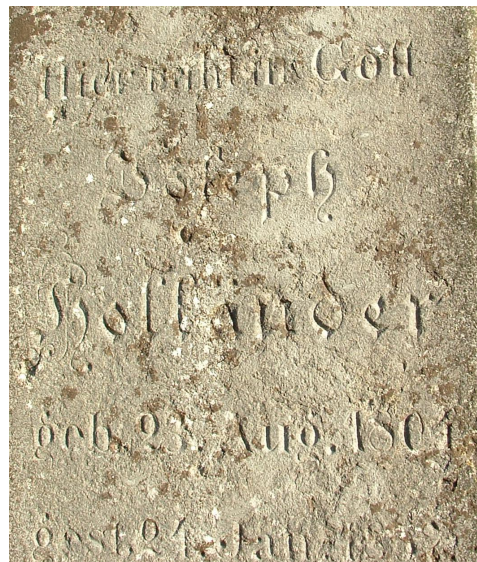 Hier ruht in Gott
Joseph
Hollander
geb. 23. Aug.
gest. 24. Jan.